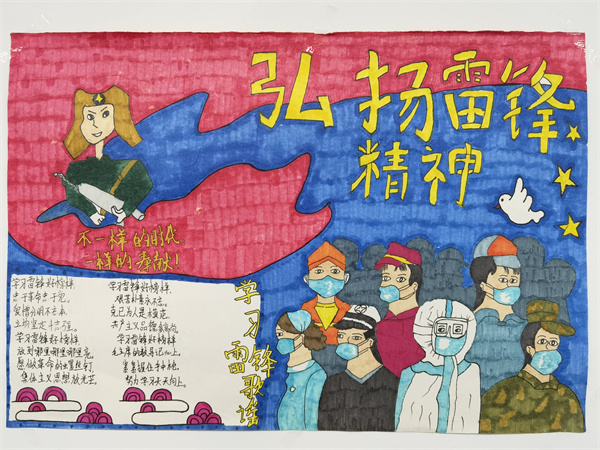 弘扬雷锋
精神
不一样的时代
一样的奉献！
学习雷锋好榜样
忠于革命忠于党
爱憎分明不忘本
立场坚定斗志强
学习雷锋好榜样
放到哪里哪里亮
愿做革命的螺丝钉
集体主义思想放光芒
学习雷锋好榜样
艰苦朴素永不忘
克己为人是模范
共产主义品德高尚
学习雷锋好榜样
毛主席的教导记心上
紧紧握住手中枪
努力学习天天向上
学习雷锋歌谣